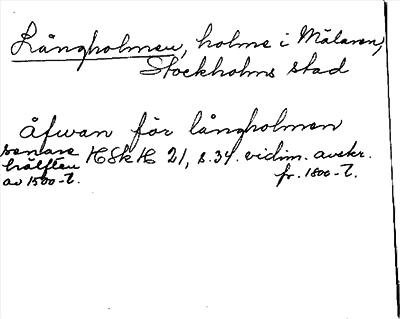 Långholmen, holme i Mälaren,
Stockholms stad
åfwan för långholmen
senare
hälften
av 1500-t.
HSkH 21, s. 34. vidim. avskr.
fr. 1800-t.